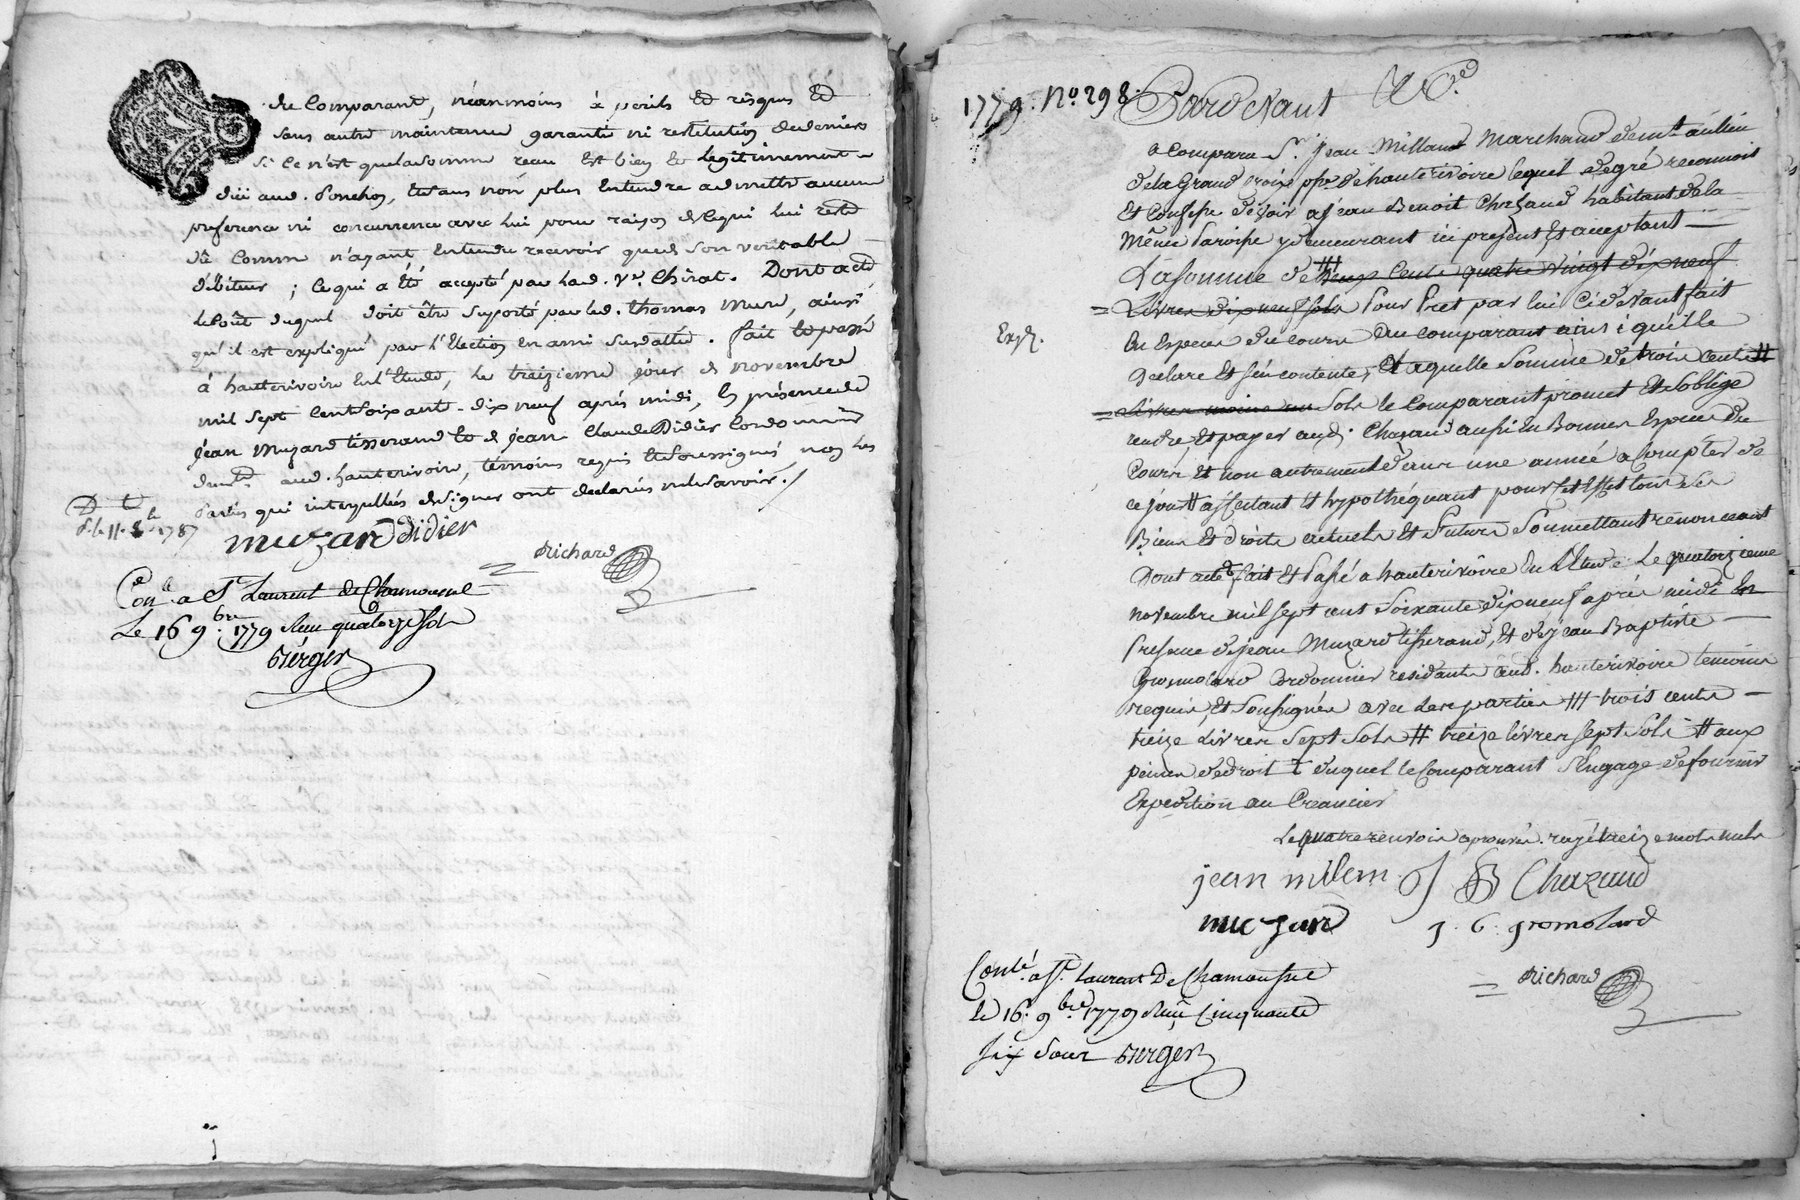 du Comparant, néanmoins à perils Et risques Et
sans autre maintenue garantie ni restitution de deniers
si ce n'est que la somme recue Est bien Et legitimement
düe aud. Ponchon, Et sans non plus Entendre admettre aucune
preference ni concurrence avec lui pour raison de ce qui lui reste
dû Comme n'ayant Entendu recevoir que de son veritable
débiteur ; ce qui a été accepté par lad. Ve. Chirat. Dont acte
le Coût duquel doit être suporté par led. thomas mure, ainsi
qu'il est expliqué par l'Election en ami susdattée. fait Et passé
à hauterivoire En l'Etude, le treizieme jour de novembre
mil sept Cent Soixante-dix neuf après midi, En présence de
jean Muzard tisserand Et de jean Claude Didier Cordonnier
demts. aud. hauterivoire, temoins requis Et Soussignés, non les
Parties qui interpellées de Signer ont declarés ne le Savoir./
D t
d. le 11. 8. 1787
muzard didier
Richard
Con.lé a St Laurent de Chamousset
Le 16 9bre 1779 Reçu quatorze Sols
Berger
1779. No. 298. Pardevant &c.
a Comparu Sr. Jean Millant Marchand demt. au lieu
de la Grand croix psse. de hauterivoire lequel de gré reconnois
Et Confesse devoir a jean Benoit Chazaud habitant de la
Même Paroisse y demeurant ici present Et acceptant
La somme de deux Cents quatre Vingt dix neuf
Livres dix neuf sols Pour Pret par lui Ci devant fait
Exp.
En Especes du cours au comparant ainsi qu'il le
Declare Et s'en contente, Laquelle Somme de trois Cents #
Livres moins un Sols le Comparant promet Et S'oblige
rendre, Et payer aud. Chazaud aussi En Bonnes Especes du
Cours, Et non autrement dans une année a Compter de
ce jour # affectant Et hypothéquant pour cet Effet tous Ses
Biens Et droits actuels Et Futurs Soumettant renonceant
Dont acte fait Et Passé a hauterivoire En l'Etude Le quatorzieme
novembre mil sept cent Soixante dix neuf après midi En
Presence de jean Muzard tisserand, Et de jean Baptiste
Gromolard Cordonnier residants aud. hauterivoire temoins
requis, Et Soussignés avec les parties # trois cents
treize Livres Sept Sols # treize livres sept Sols # aux
peines de droit t duquel le Comparant S'engage de fournir
Expedition au Creancier
Les quatre renvois aprouvés. rayé treize mots nuls
jean milem J B Chazaud
muzard J. b. gromolard
Richard
Conlé. a St. Laurent De Chamousset
le 16. 9bre 1779 Reçu Cinquante
Six Sous Berger